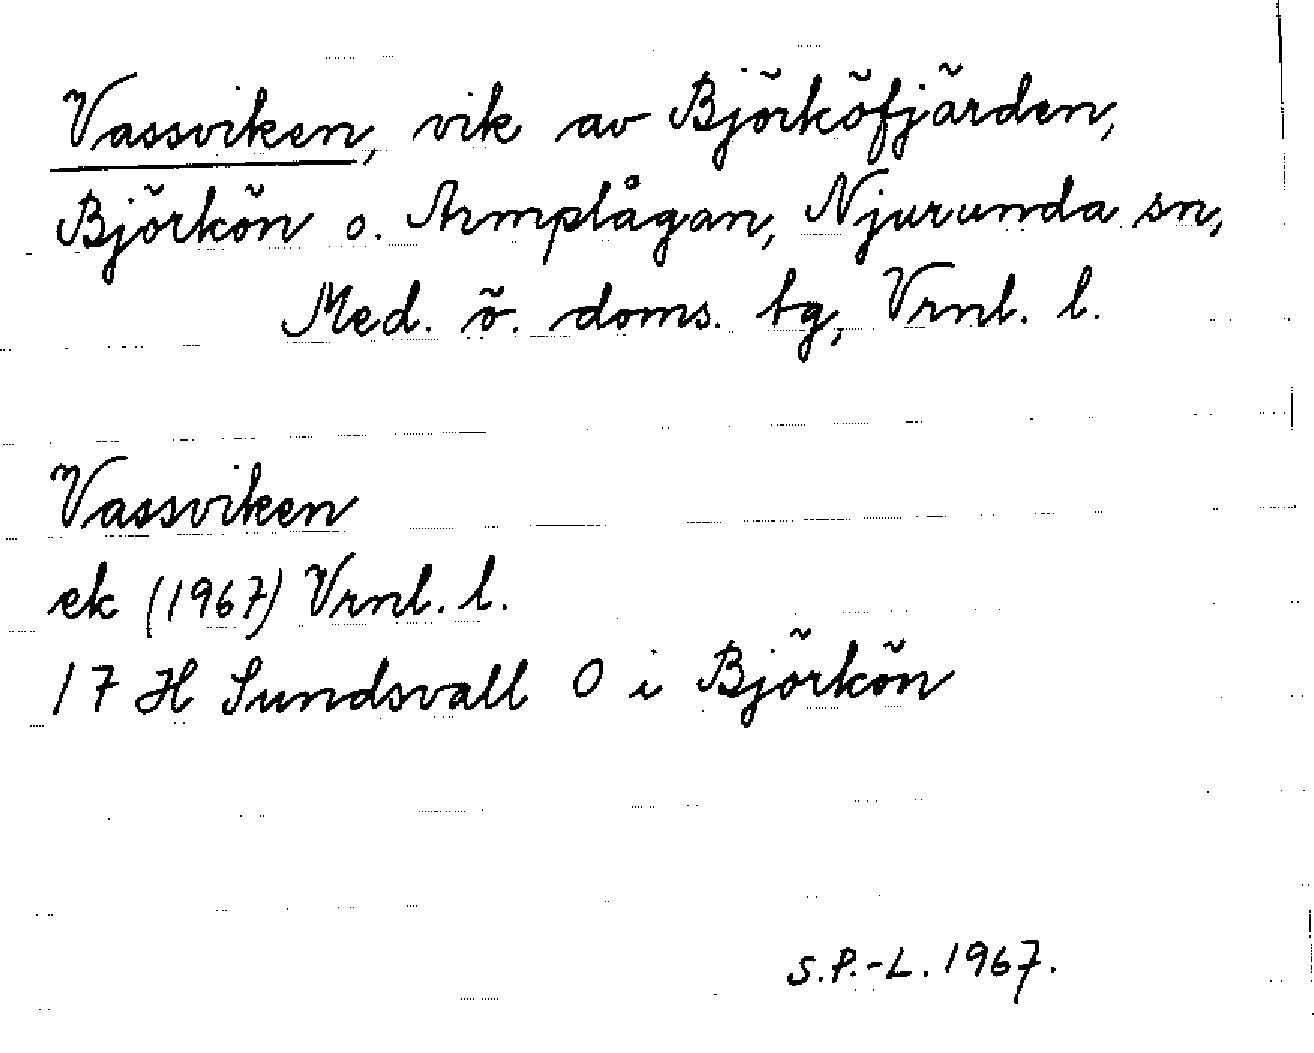 Vassviken, vik av Björköfjärden,
Björkön o. Armplågan, Njurunda sn,
Med. ö. doms. tg, Vrnl. l.
Vassviken
ek (1967) Vrnl. l.
17 H Sundsvall O i Björkön
S.P.-L. 1967.